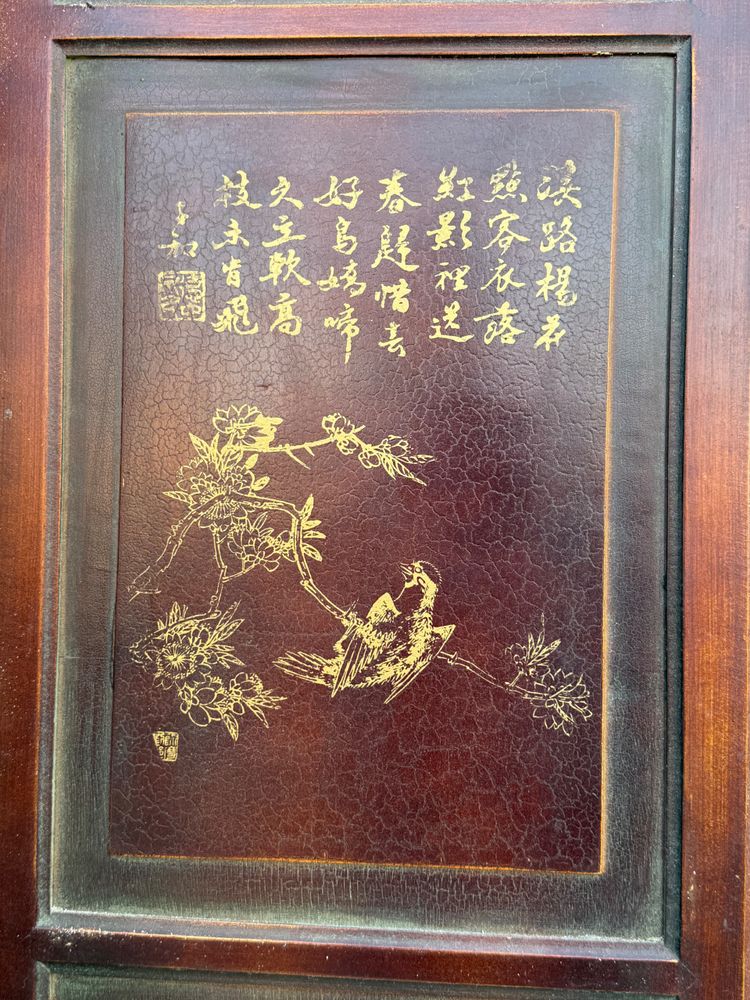 溪路楊花
點客衣落
紅影裡送
春歸惜春
好鳥嬌啼
久立軟高
枝未肯飛
子和